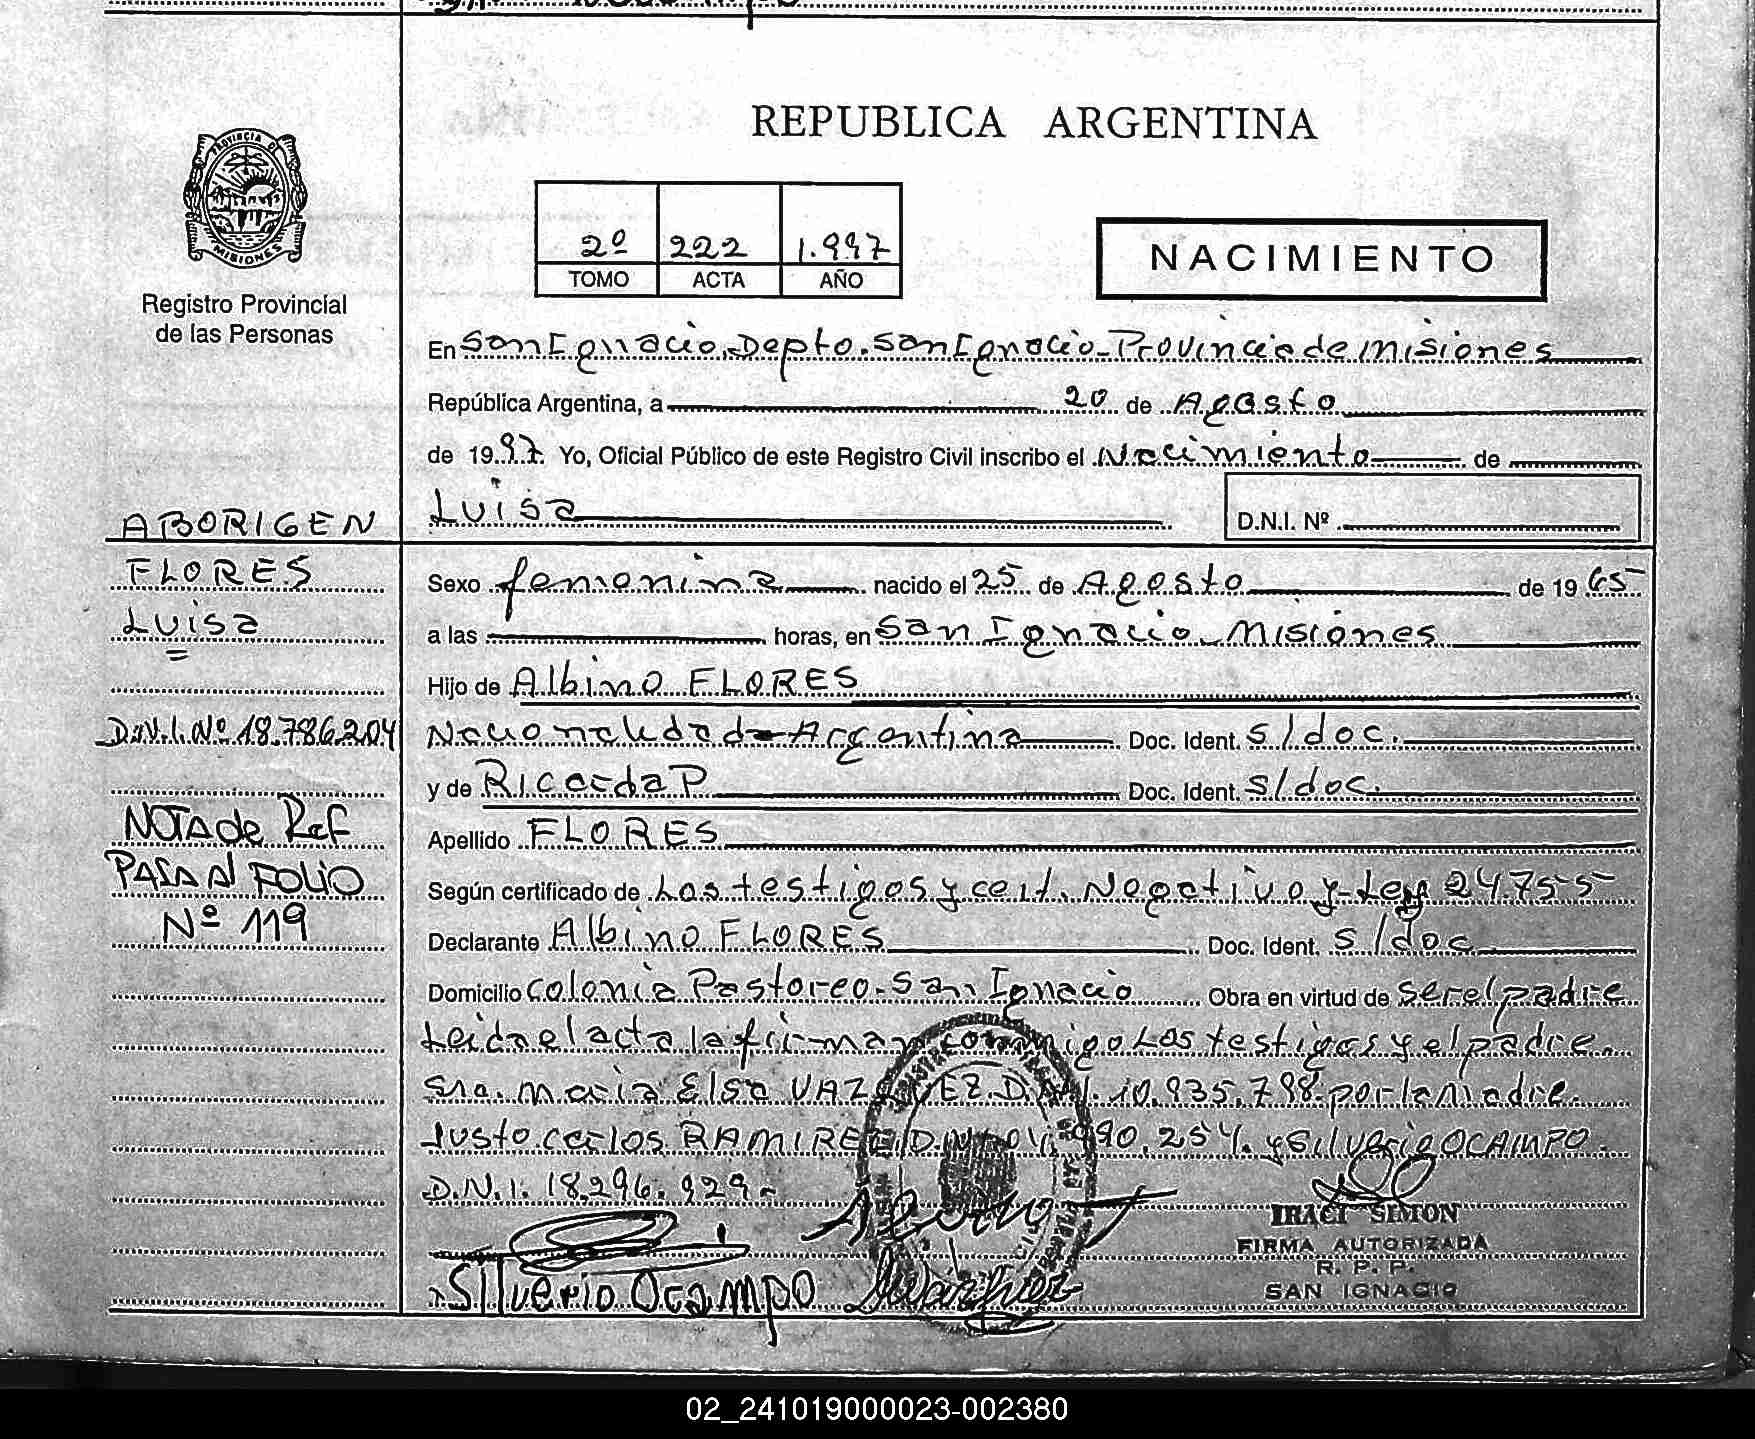 REPUBLICA ARGENTINA
PROVINCIA DE
MISIONES
Registro Provincial
de las Personas
2º 222 1.997
TOMO ACTA AÑO
NACIMIENTO
En San Ignacio, Depto. San Ignacio - Provincia de misiones
República Argentina, a 20 de Agosto
de 1997. Yo, Oficial Público de este Registro Civil inscribo el Nacimiento de
Luisa
D.N.I. Nº
ABORIGEN
FLORES
Luisa
D.N.I. Nº 18.786.204
NOTA de Ref
PASA Al FOLIO
Nº 119
Sexo femenina nacido el 25 de Agosto de 1965
a las horas, en San Ignacio - Misiones
Hijo de Albino FLORES
Nacionalidad - Argentina Doc. Ident. s/doc.
y de Ricarda P Doc. Ident. s/doc.
Apellido FLORES
Según certificado de Los testigos y cert. Negativo y Ley 24.755
Declarante Albino FLORES Doc. Ident. s/doc
Domicilio colonia Pastoreo - San Ignacio Obra en virtud de ser el padre
Leida el acta la firman conmigo Los testigos y el padre.
Sra. Maria Elsa VAZQUEZ. D.N.I. 10.935.798 por la madre.
Justo carlos RAMIREZ D.N.I. 990.254. y Silverio OCAMPO.
D.N.I. 18.296.929 -
IRACI SIMON
FIRMA AUTORIZADA
R. P. P.
SAN IGNACIO
Silverio Ocampo
02_241019000023-002380